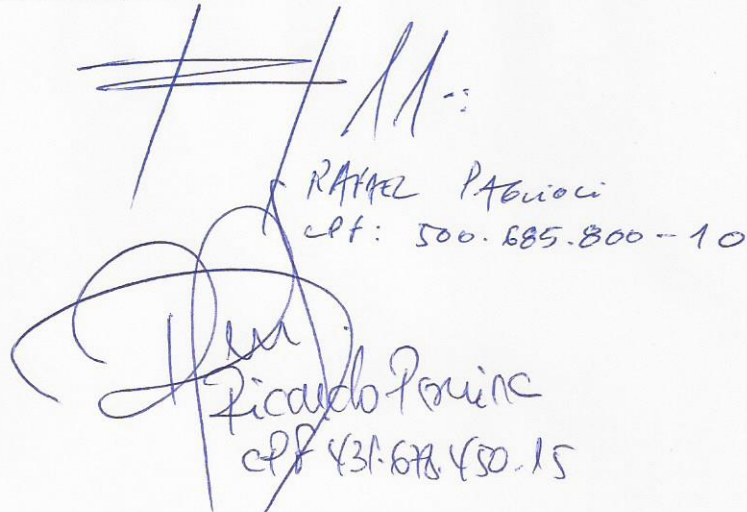 RAFAEL PAGLIOCI
CPF: 500.685.800-10
Ricardo
CPF 431.678.450-15